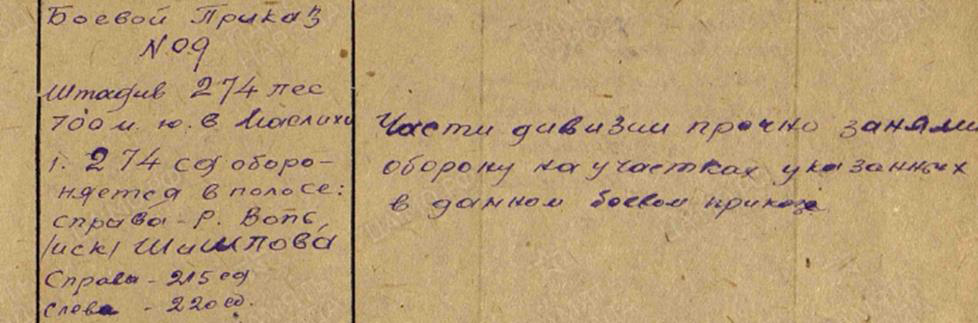 Боевой Приказ
№ 09
Штадив 274 лес
700 м. ю.в Маслихи
1. 274 сд оборо-
няется в полосе:
справа - р. Вопь,
/иск/ Шишпова
Справа - 215 сд
Слева - 220 сд.
Части дивизии прочно заняли
оборону на участках указанных
в данном боевом приказе